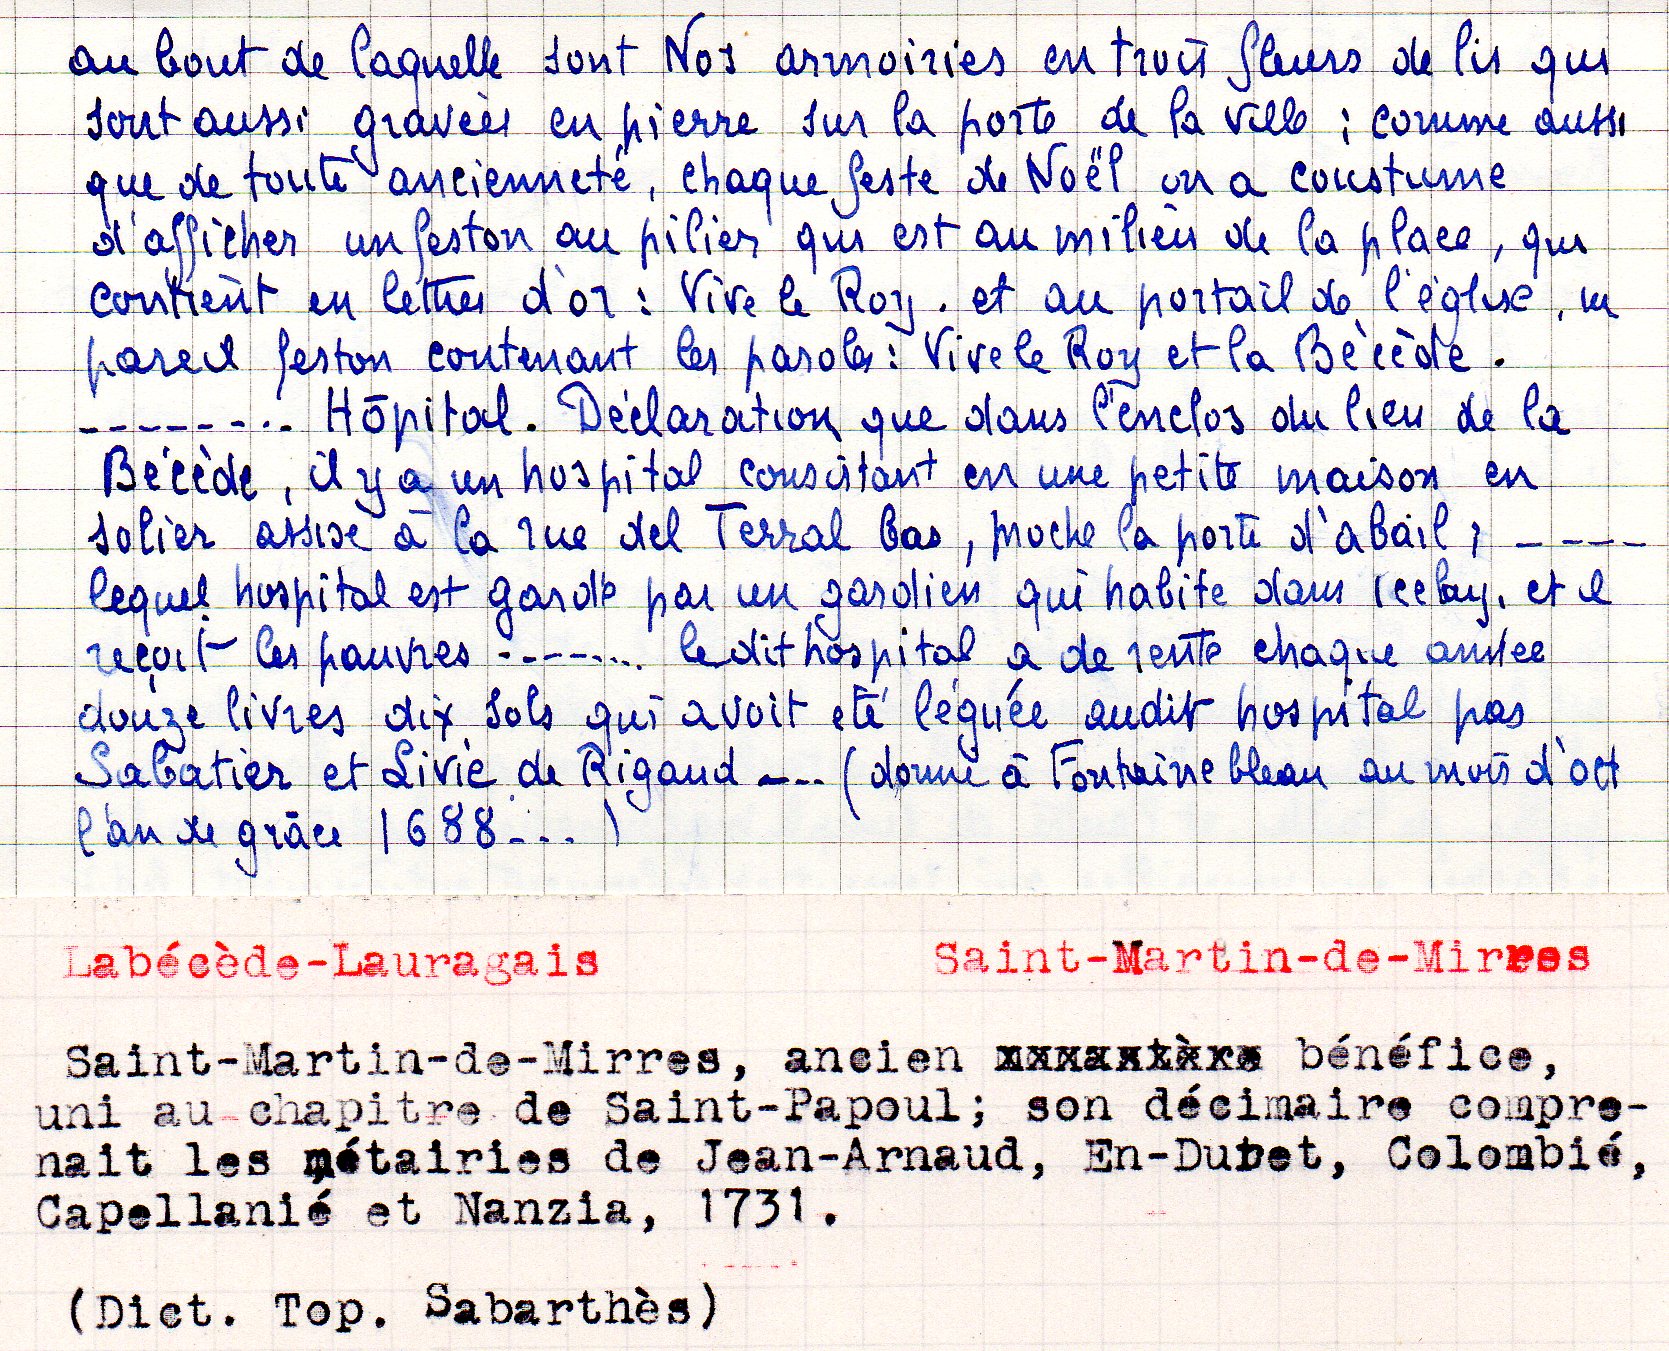 au bout de laquelle sont Nos armoiries en trois fleurs de lis qui
sont aussi gravées en pierre sur la porte de la ville ; comme aussi
que de toute ancienneté, chaque feste de Noël on a coustume
d'afficher un feston au pilier qui est au milieu de la place, qui
contient en lettres d'or : Vive le Roy . et au portail de l'église, un
pareil feston contenant les paroles : Vive le Roy et la Bécède .
--------.. Hôpital. Déclaration que dans l'enclos du lieu de la
Bécède, il y a un hospital consistant en une petite maison en
solier assise à la rue del Terral bas, proche la porte d'abail ; ----
lequel hospital est gardé par un gardien qui habite dans iceluy, et il
reçoit les pauvres ------... le dit hospital a de rente chaque année
douze livres dix sols qui avoit été léguée audit hospital par
Sabatier et Livie de Rigaud ---.. (donné à Fontainebleau au mois d'oct
l'an de grâce 1688-...)
Labécède-Lauragais Saint-Martin-de-Mirres
Saint-Martin-de-Mirres, ancien bénéfice,
uni au chapitre de Saint-Papoul; son décimaire compre-
nait les métairies de Jean-Arnaud, En-Dubet, Colombié,
Capellanié et Nanzia, 1731.
(Dict. Top. Sabarthès)